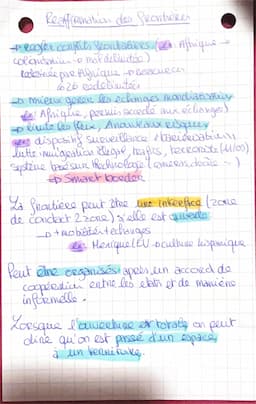 Réaffirmation des frontières
→ Régler conflits frontaliers (ex: Afrique →
colonisation → mal délimitée)
Afrique → ressources
→ mieux gérer les échanges mondialisation
ex: Afrique, permis accède aux échanges)
ex: dispositif surveillance
lutte immigration illégale, trafics, terrorisme (11/09)
système basé sur technologie (
⇒ Smart border
La frontière peut être une interface (zone
de contact 2 zone) si elle est ouverte
→ + mobilités + échanges
ex: Mexique/EU → culture hispanique
Peut être organisés après un accord de
coopération entre les états et de manière
informelle.
Lorsque l'ouverture est totale on peut
dire qu'on est passé d'un espace
à un territoire.